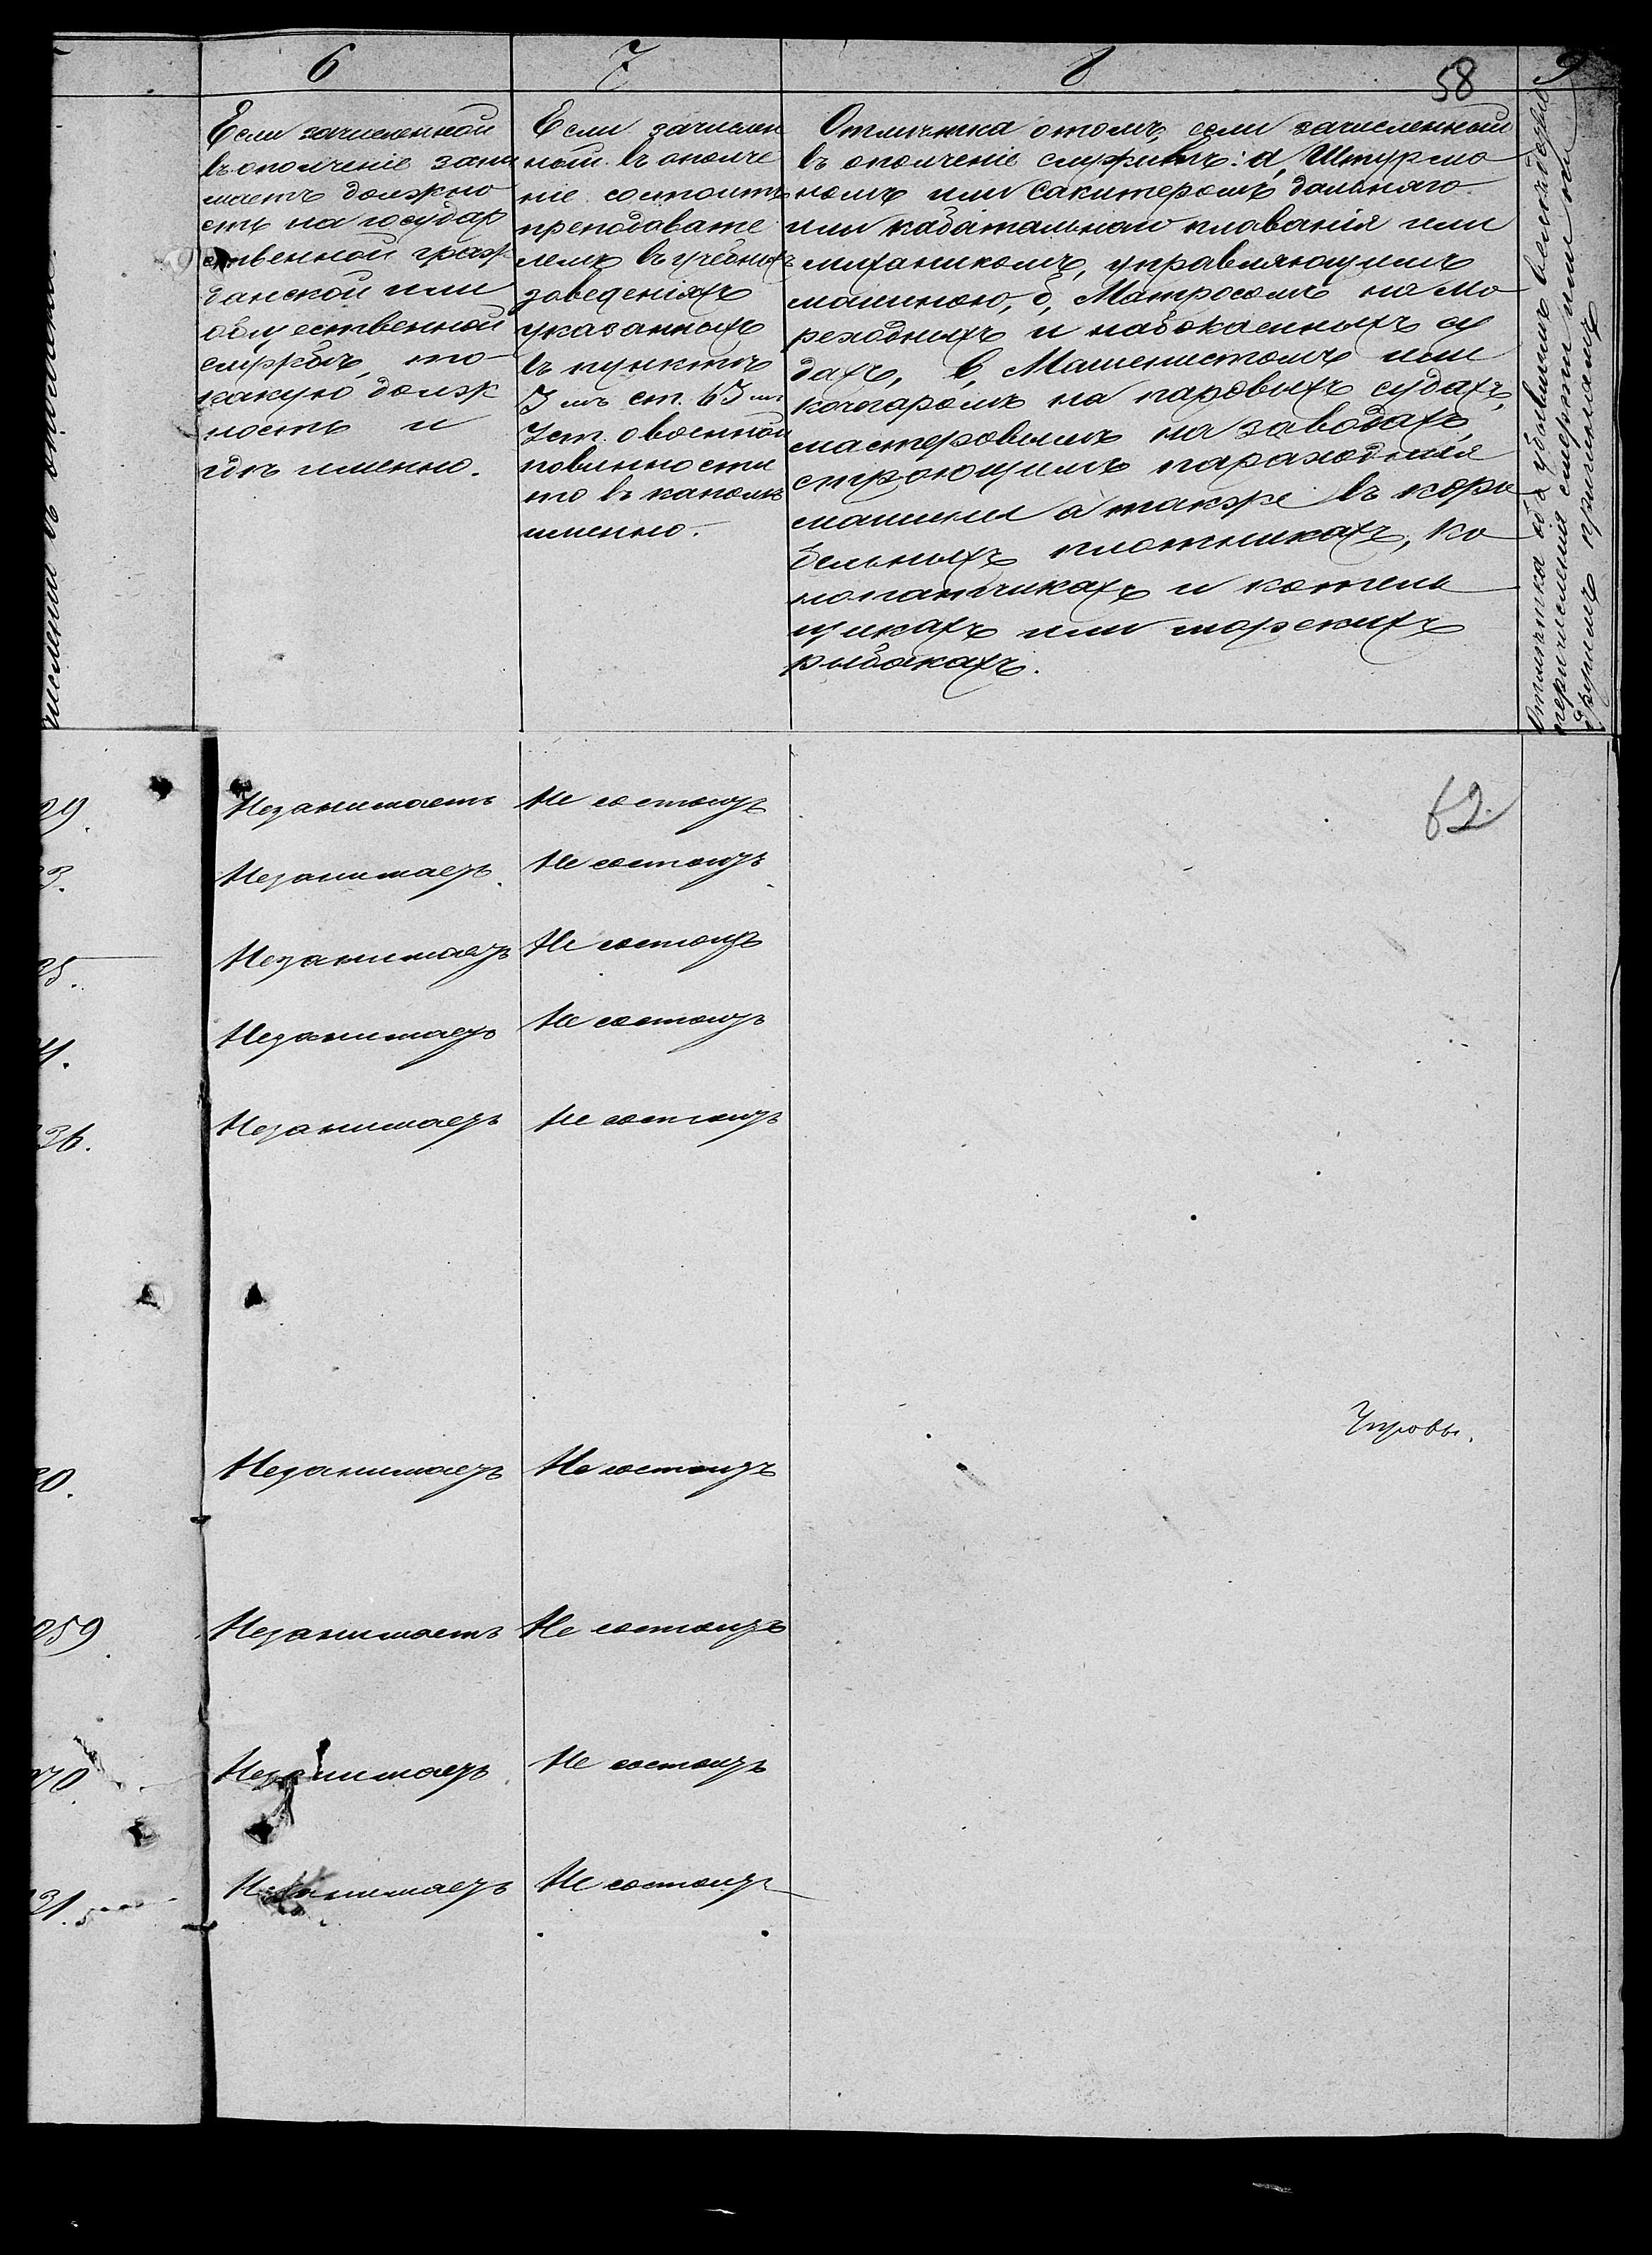 6
7
8
58
9
Если зачисленной
въ ополченіе зани
маетъ должно
сть на государ
ственной граж
данской или
общественной
службѣ, то
какую долж
ность и
гдѣ именно.
Если зачислен
ный въ ополче
ніе состоитъ
преподавате
лемъ въ учебныхъ
заведеніяхъ
указанныхъ
въ пунктѣ
3 мъ ст. 63 й
Уст. о военной
повинности
то въ какомъ
именно.
Отмѣтка отомъ, если зачисленный
въ ополченіе служитъ: а, Штурма
номъ или Шкиперомъ дальняго
или кабатальнаго плаванія или
механикомъ, управляющимъ
машиною, б, Матросомъ на мо
реходныхъ и кабокаенныхъ су
дахъ, в, Машенистомъ или
кочегаромъ на паровыхъ судахъ,
мастеровымъ на заводахъ,
строющимъ параходныя
машины а также въ кора
бельныхъ плотникахъ, ко
нопатчикахъ и котель
щикахъ или морскихъ
рыбакахъ.
Отмѣтка объ убывшихъ вслѣдствіе
перечисленія смерти или по
другимъ причинамъ
29. Незанимаетъ Не состоитъ
62.
3. Незанимаетъ Не состоитъ
35. Незанимаетъ Не состоитъ
Незанимаетъ Не состоитъ
36. Незанимаетъ Не состоитъ
30. Незанимаетъ Не состоитъ
259. Незанимаетъ Не состоитъ
270. Незанимаетъ Не состоитъ
31. Незанимаетъ Не состоитъ